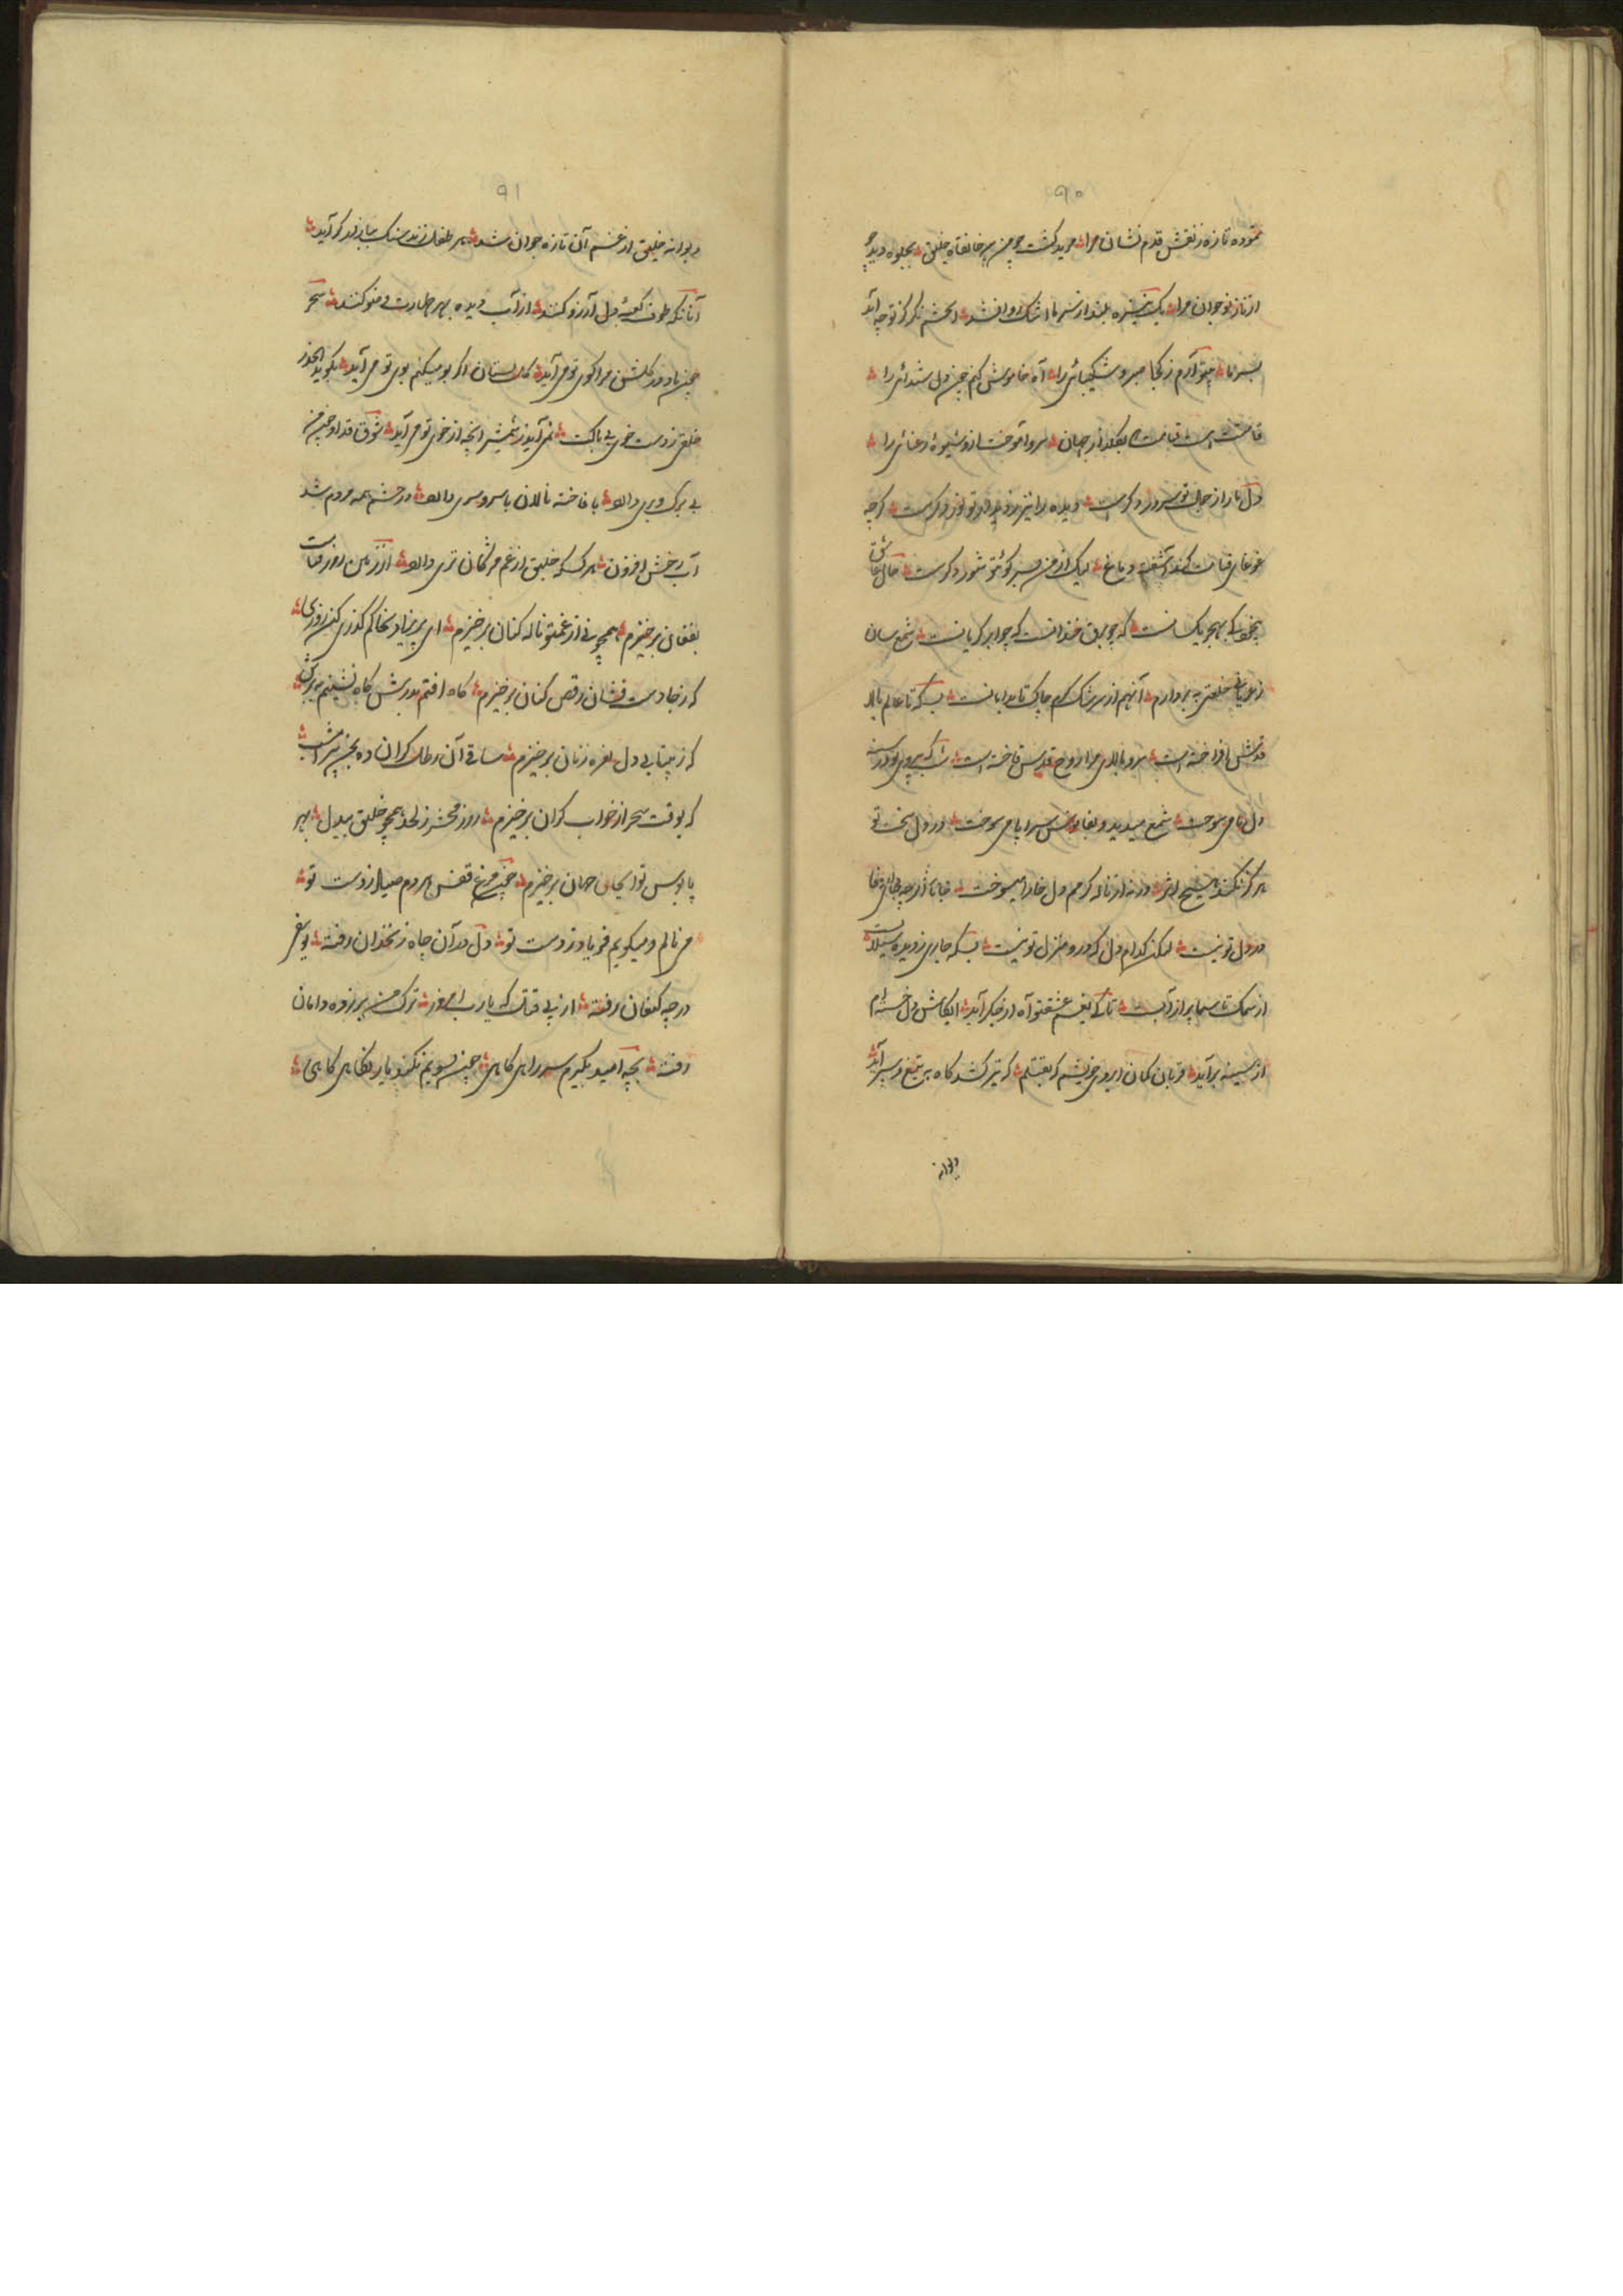 ۹۰
نموده تازه ز نقش قدم نشان مرا مرید گشت چو من پیر خانقاه خلیق بجلوه دید چو
از ناز نوجوان مرا یک نیزه بلند از سر ما اشک روان شد ای چشم نگر کز تو چه آید
بسر ما بیتو آرم ز کجا صبر و شکیبائی را آه خاموش کنم چون دل شیدائی را
قامتت است قیامت از جهان سرو آموخت ازو شیوهٔ رعنائی را
دل ما را ز جمال تو سرور دگرست دیده را نیز ز دیدار تو نور دگرست گرچه
غوغای قیامت کند آشفته دماغ لیک از من بسر کوی تو شور دگرست حال عاشق
بهجر یکسانست گه چو برق خندانست گه چو ابر گریانست شمع سان
ز عریانی خلعتی به بر دارم آنهم از سرشک من چاک تا بدامانست بسکه تا عالم بالا
قدش افراخته است سرو بالای مرا روح قدس فاخته است شب که بیروی تو در سینه
دل ما می سوخت شمع میدید و بفانوس سراپا می سوخت در دل سخت تو
هرگز نکند هیچ اثر ورنه از ناله گرمم دل خارا میسوخت
در دل تو نیست لیکن کدام دل که درو منزل تو نیست بسکه جاری ز دیده سیلابست
از سمک تا سما پر از آبست تا کی ز غم عشقتو آه از جگر آید ایکاش دل خسته ام
از سینه برآید قربان کمان ابروی خویشم که بقتلم گه تیر کشد گاه به تیغ و سپر آید
دیوانه
۹۱
دیوانه خلیق از غم آن تازه جوان شد هر طفل زند سنگ بهار گذر آید
آنانکه طوف کعبهٔ دل آرزو کنند از آب دیده بهر طهارت وضو کنند سحر
چون باد در گلشن مرا کوی تو می آید گلستان را گر بو میکنم بوی تو می آید بگوید الحذر
خلق ز دست خوی بی باکت نمی آید ز شمشیر آنچه از خوی تو می آید شوق قد او چون من
بی برگ و بری دارد با فاخته نالان یا سرو سری دارد در چشم همه مردم شد
آب رخش افزون هر کس که خلیق از غم مژگان تری دارد از زمین روز قیامت
بفغان برخیزم همچو نی از غمتو ناله کنان برخیزم ای پریزاد بخاکم گذری کن روزی
که ز جا دست فشان رقص کنان برخیزم گاه افتم بدرش گاه نشینم به برش
که ز بیتابی دل نعره زنان برخیزم ساقی آن رطل گران ده بمن پیر امشب
که بوقت سحر از خواب گران برخیزم روز محشر ز لحد همچو خلیق بیدل بهر
پابوس تو ایجان جهان برخیزم چون مرغ قفس هر دم صیاد ز دست تو
می نالم و میگویم فریاد ز دست تو دل در آن چاه زنخدان رفته یوسفی
در چه کنعان رفته از پی قتل که یارب امروز ترک من بر زده دامان
رفته بچه امید بگیرم سر راهی گاهی چون بسویم نکند یار نگاهی گاهی